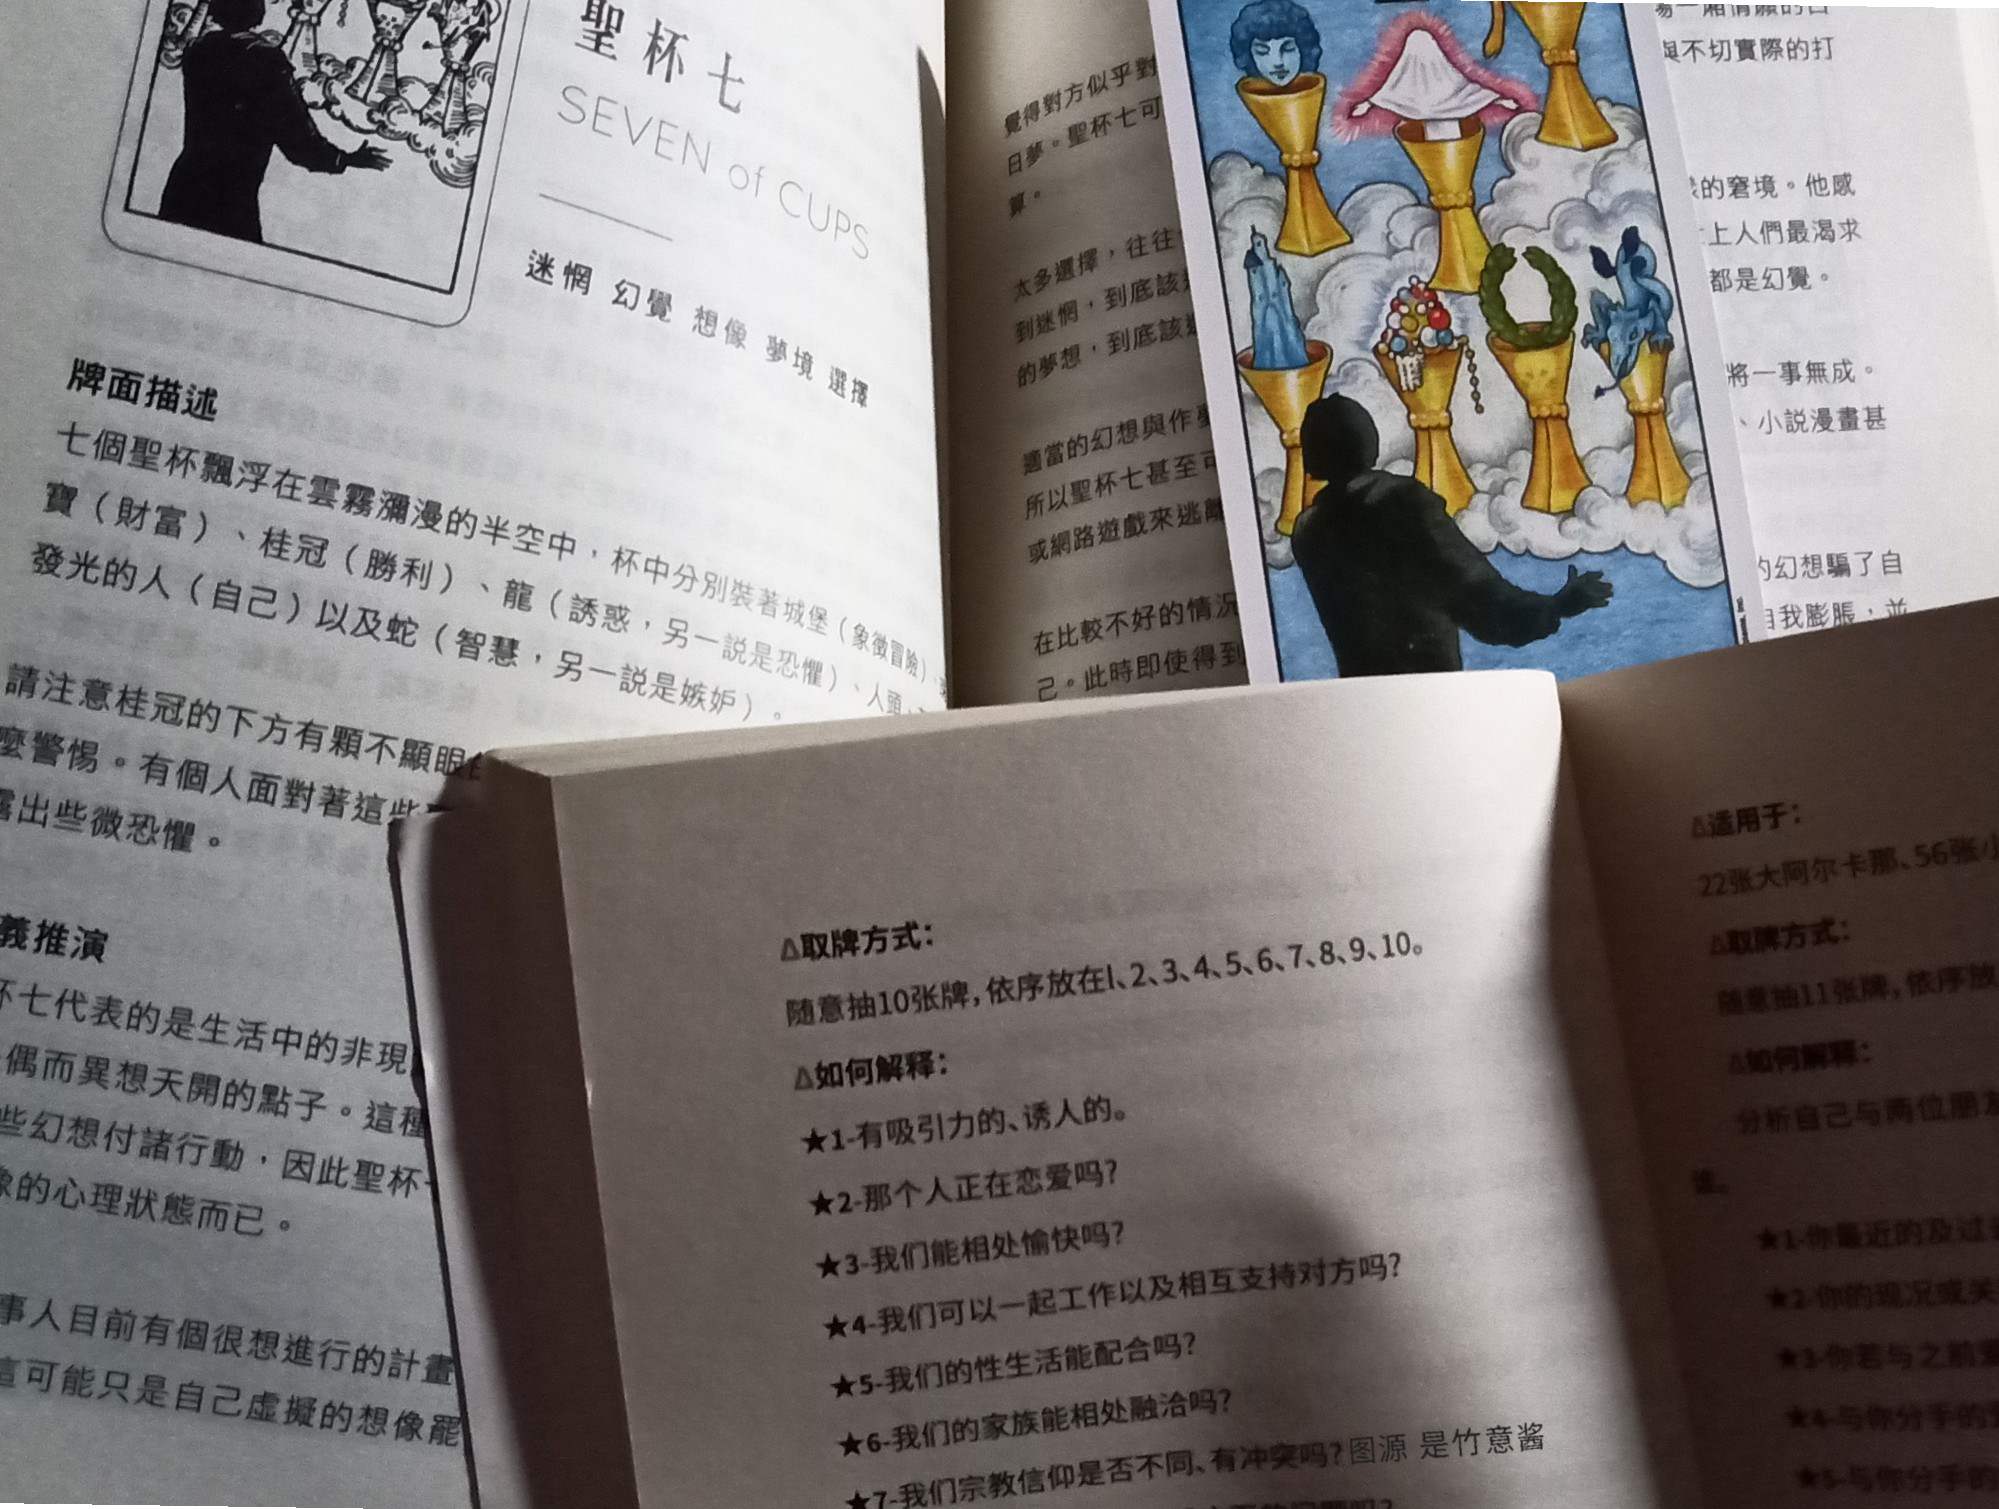 聖杯七
SEVEN of CUPS
迷惘 幻覺 想像 夢境 選擇
牌面描述
七個聖杯飄浮在雲霧瀰漫的半空中，杯中分別裝著城堡（象徵冒險）、
寶（財富）、桂冠（勝利）、龍（誘惑，另一說是恐懼）、人頭
發光的人（自己）以及蛇（智慧，另一說是嫉妒）。
請注意桂冠的下方有顆不顯眼
麼警惕。有個人面對著這些
露出些微恐懼。
義推演
杯七代表的是生活中的非現
偶而異想天開的點子。這種
些幻想付諸行動，因此聖杯
像的心理狀態而已。
事人目前有個很想進行的計畫
這可能只是自己虛擬的想像罷
覺得對方似乎對
日夢。聖杯七可
算。
太多選擇，往往
到迷惘，到底該
的夢想，到底該
適當的幻想與作
所以聖杯七甚至可
或網路遊戲來逃離
在比較不好的情況
己。此時即使得到
與不切實際的打
的窘境。他感
上人們最渴求
都是幻覺。
將一事無成。
、小說漫畫甚
的幻想騙了自
自我膨脹，並
Δ取牌方式：
随意抽10张牌，依序放在1、2、3、4、5、6、7、8、9、10。
Δ如何解释：
★1-有吸引力的、诱人的。
★2-那个人正在恋爱吗？
★3-我们能相处愉快吗？
★4-我们可以一起工作以及相互支持对方吗？
★5-我们的性生活能配合吗？
★6-我们的家族能相处融洽吗？
★7-我们宗教信仰是否不同、有冲突吗？
图源 是竹意酱
Δ适用于：
22张大阿尔卡那、56张小
Δ取牌方式：
随意抽11张牌，依序放
Δ如何解释：
分析自己与两位朋友
★1-你最近的及过
★2-你的现况或关
★3-你若与之前
★4-与你分手的
★5-与你分手的